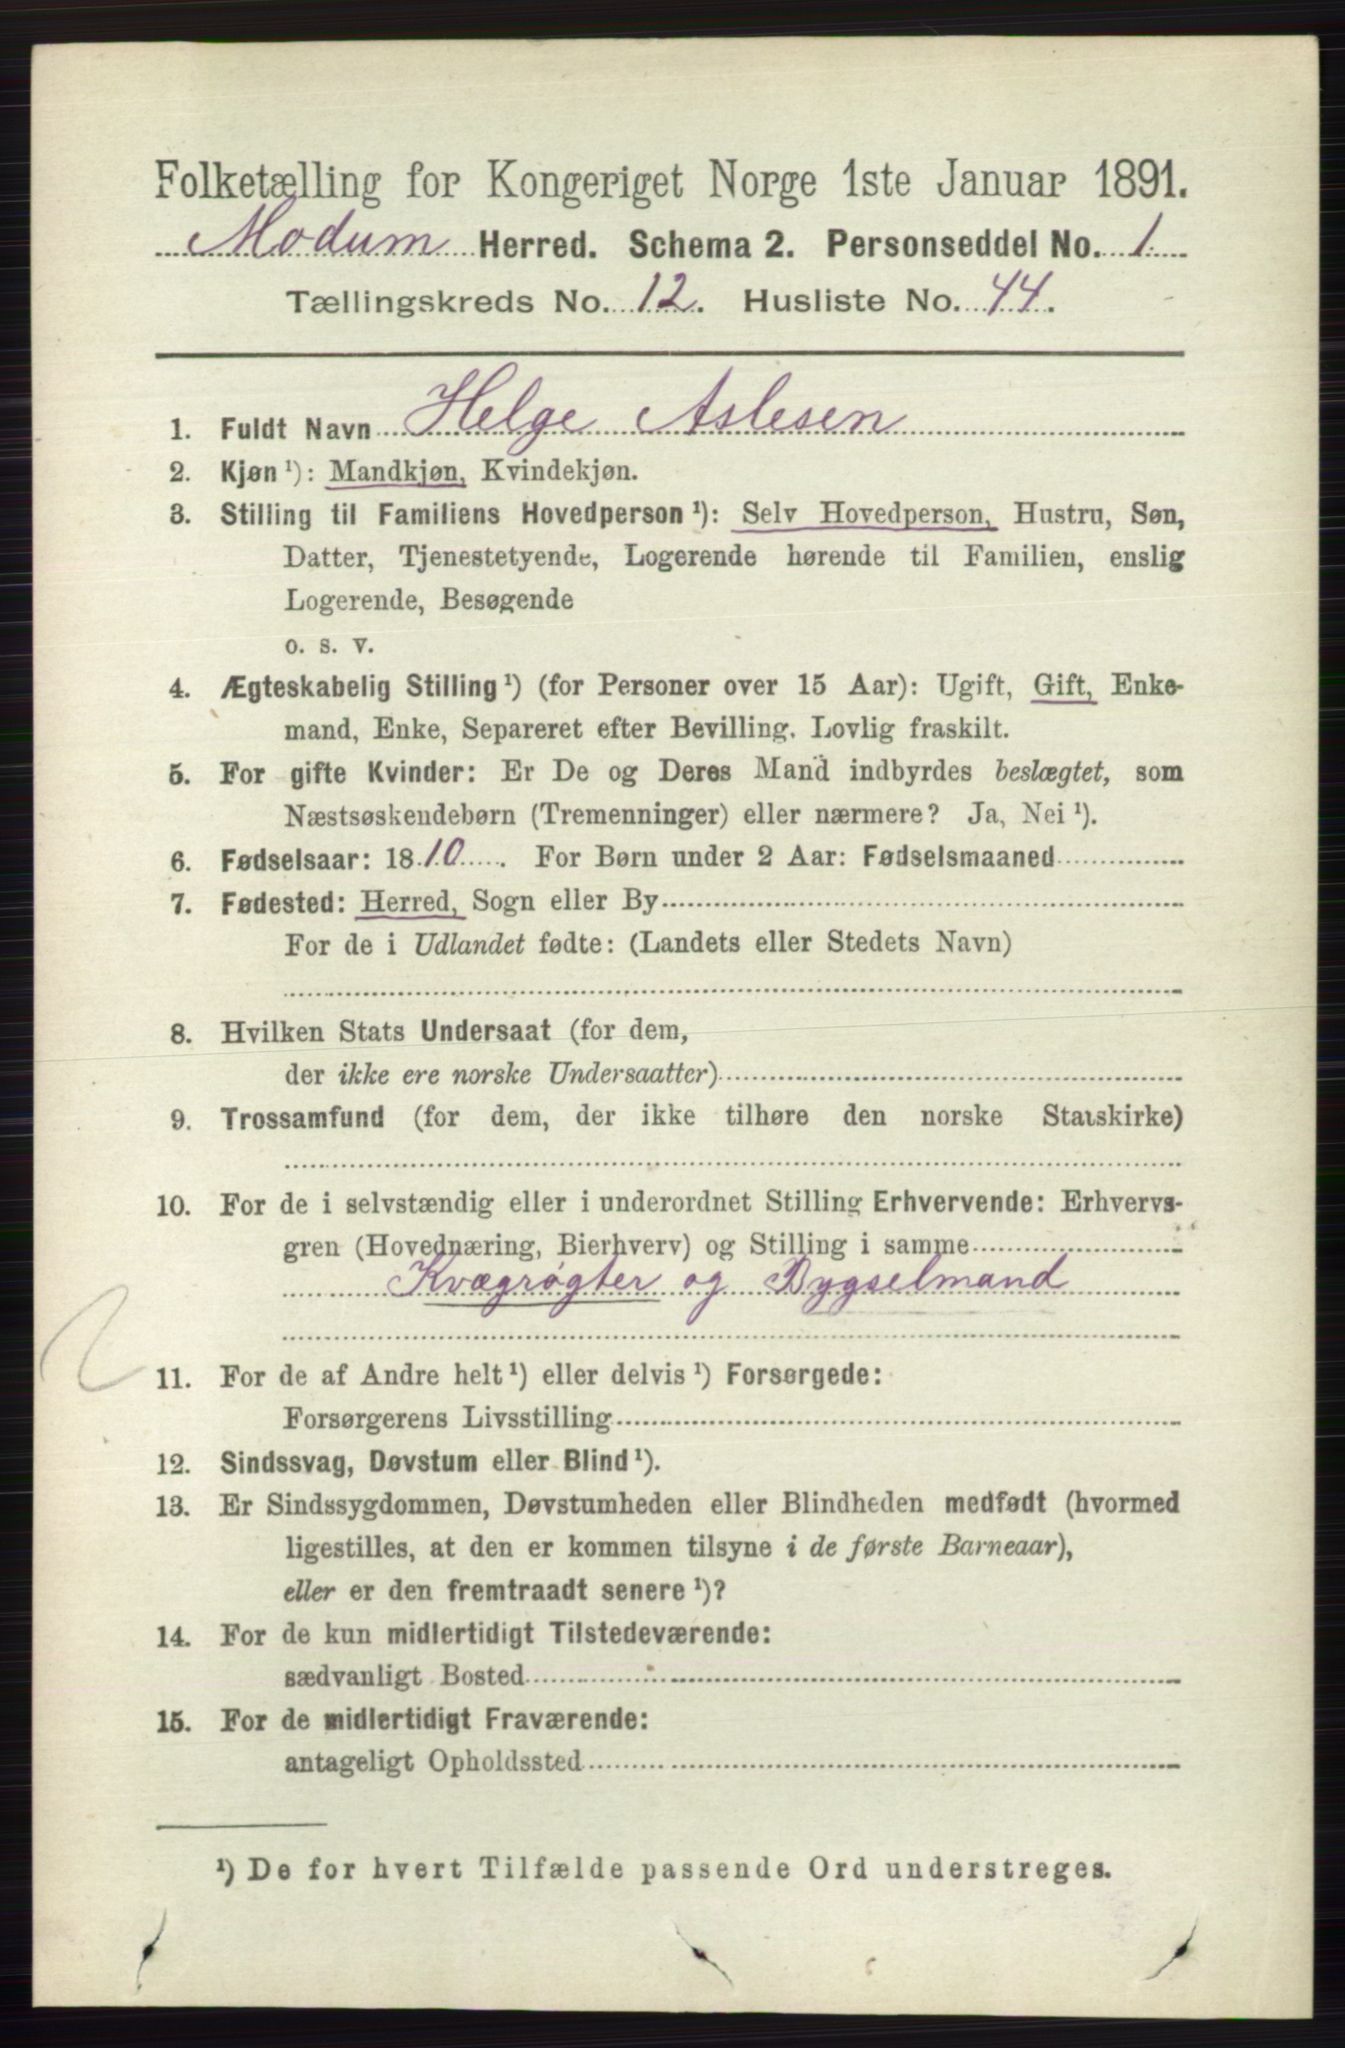 Folketælling for Kongeriget Norge 1ste Januar 1891.
Modum Herred. Schema 2. Personseddel No. 1
Tællingskreds No. 12. Husliste No. 44.
1. Fuldt Navn Helge Aslesen
2. Kjøn ¹): Mandkjøn, Kvindekjøn.
3. Stilling til Familiens Hovedperson ¹): Selv Hovedperson, Hustru, Søn,
Datter, Tjenestetyende, Logerende hørende til Familien, enslig
Logerende, Besøgende
o. s. v.
4. Ægteskabelig Stilling ¹) (for Personer over 15 Aar): Ugift, Gift, Enke-
mand, Enke, Separeret efter Bevilling. Lovlig fraskilt.
5. For gifte Kvinder: Er De og Deres Mand indbyrdes beslægtet, som
Næstsøskendebørn (Tremenninger) eller nærmere? Ja, Nei ¹).
6. Fødselsaar: 1810. For Børn under 2 Aar: Fødselsmaaned
7. Fødested: Herred, Sogn eller By
For de i Udlandet fødte: (Landets eller Stedets Navn)
8. Hvilken Stats Undersaat (for dem,
der ikke ere norske Undersaatter)
9. Trossamfund (for dem, der ikke tilhøre den norske Statskirke)
10. For de i selvstændig eller i underordnet Stilling Erhvervende: Erhvervs-
gren (Hovednæring, Bierhverv) og Stilling i samme
Kvægrøgter og Bygselmand
11. For de af Andre helt ¹) eller delvis ¹) Forsørgede:
Forsørgerens Livsstilling
12. Sindssvag, Døvstum eller Blind ¹).
13. Er Sindssygdommen, Døvstumheden eller Blindheden medfødt (hvormed
ligestilles, at den er kommen tilsyne i de første Barneaar),
eller er den fremtraadt senere ¹)?
14. For de kun midlertidigt Tilstedeværende:
sædvanligt Bosted
15. For de midlertidigt Fraværende:
antageligt Opholdssted
¹) De for hvert Tilfælde passende Ord understreges.